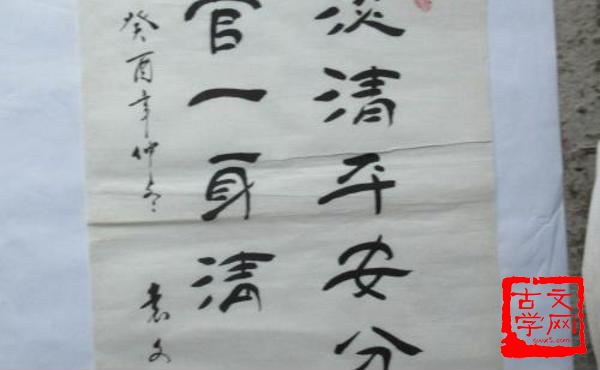 淡清平安分
官一身清
癸酉年仲冬
袁文
古文学网
gwx5.com